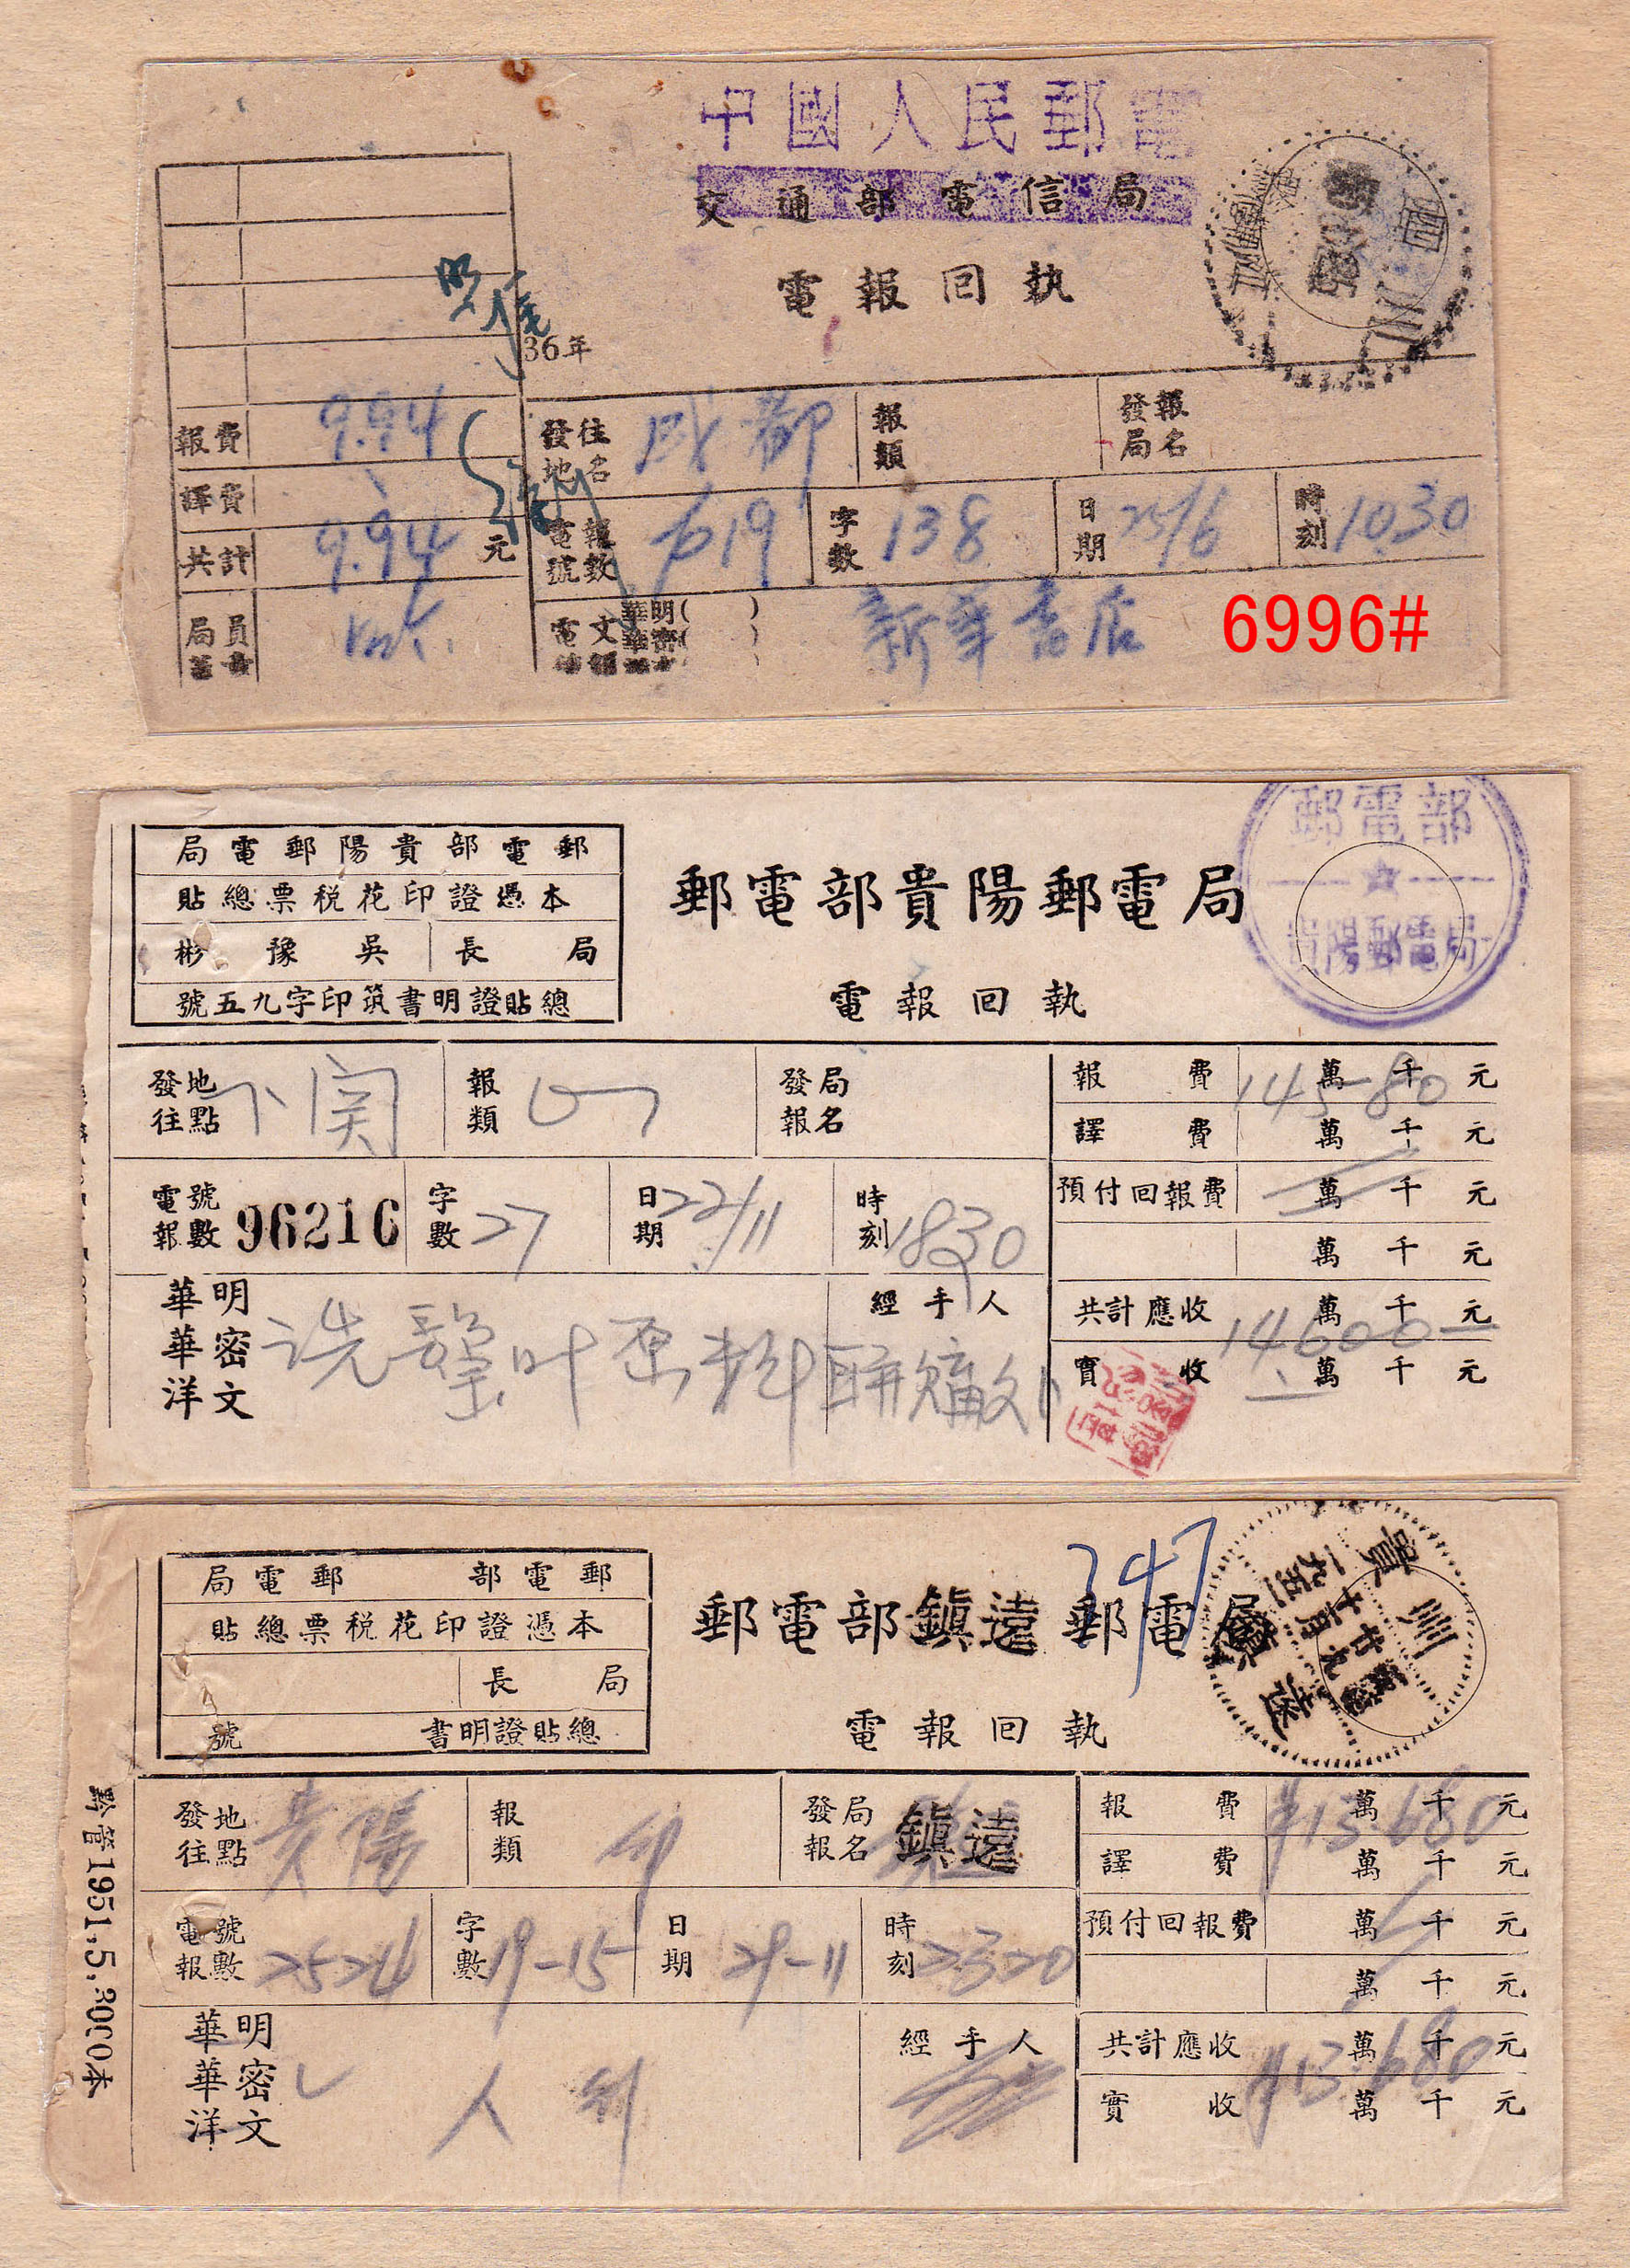 中國人民郵電
交通部電信局
電報回執
36年
報費 9.94
譯費
共計 9.94 元
局員
發往地名 成都
報類
發報局名
電報號數 619
字數 138
日期 25/6
時刻 10.30
電文 華明( )
華密( )
新華書店
6996#
局電郵陽貴部電郵
貼總票税花印證憑本
彬豫吳 長局
號五九字印筑書明證貼總
郵電部貴陽郵電局
電報回執
郵電部
貴陽郵電局
發往地點 下関
報類
發報局名
電報號數 96216
字數 27
日期 22/11
時刻 1830
華明
華密
洋文
經手人
報費 14580 萬千元
譯費 萬千元
預付回報費 萬千元
萬千元
共計應收 14600 萬千元
實收 萬千元
局電郵 部電郵
貼總票税花印證憑本
長局
號 書明證貼總
郵電部鎮遠郵電局
747
電報回執
貴州
一九五一
十一月廿九
鎮遠
黔管1951,5,3000本
發往地點 贵陽
報類
發報局名 鎮遠
電報號數 2524
字數 19-15
日期 29-11
時刻 2320
華明
華密
洋文
經手人
報費 13.680 萬千元
譯費 萬千元
預付回報費 萬千元
萬千元
共計應收 13.680 萬千元
實收 萬千元